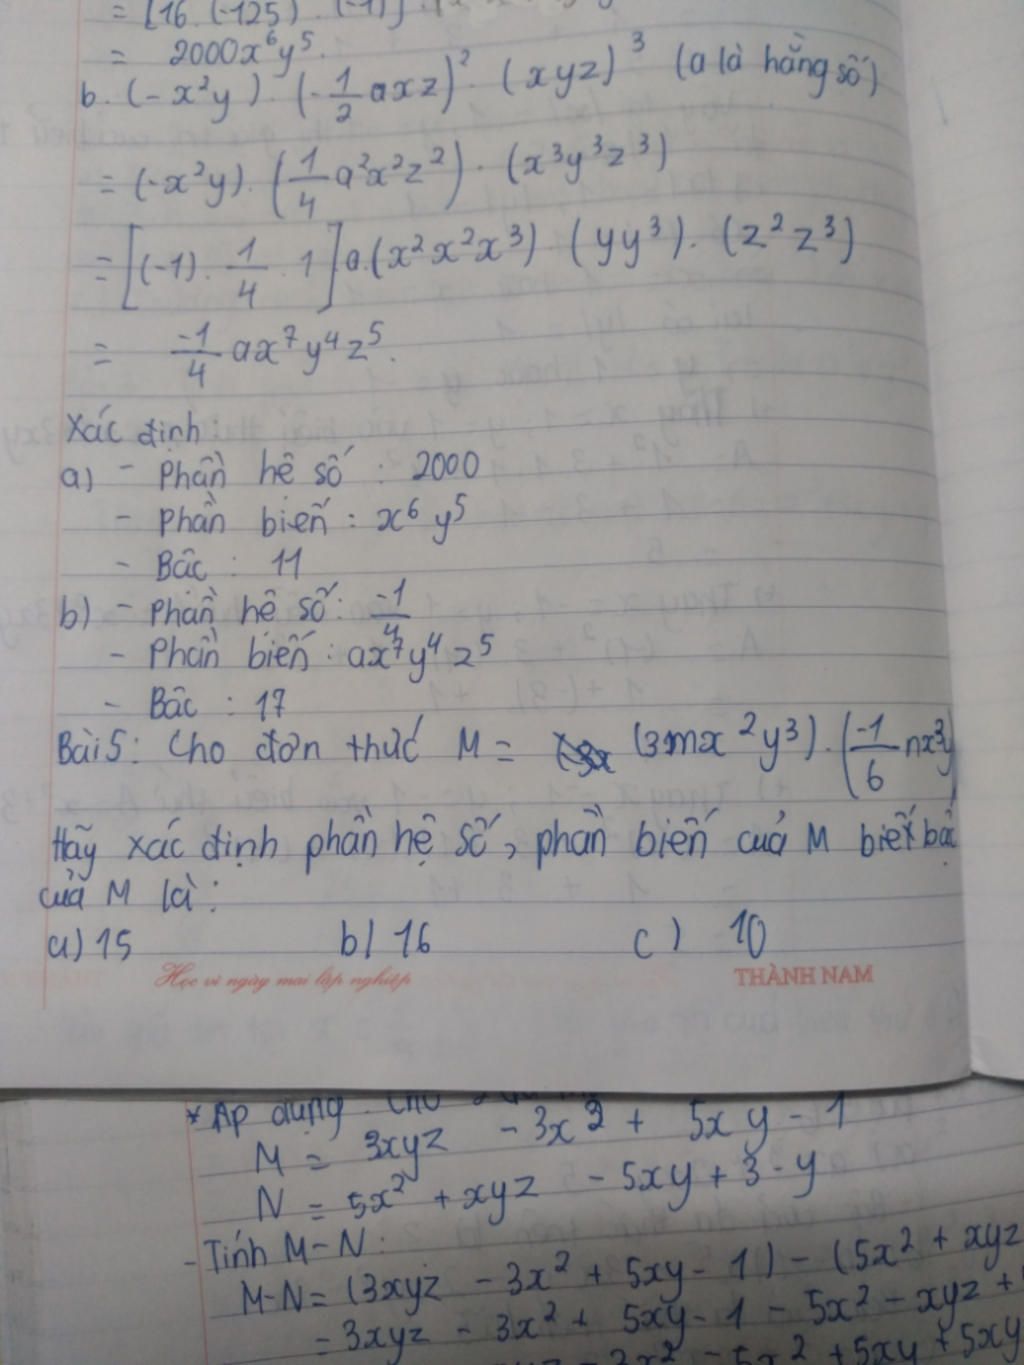 = [16 . (-125) . (-1)] .
= 2000x⁶y⁵.
b. (-x²y) . (-1/2 axz)² . (xyz)³ (a là hằng số)
= (-x²y) . (1/4 a²x²z²) . (x³y³z³)
= [(-1) . 1/4 . 1] a.(x²x²x³) . (yy³) . (z²z³)
= -1/4 ax⁷y⁴z⁵.
Xác định:
a) - Phần hệ số : 2000
- Phần biến : x⁶y⁵
- Bậc : 11
b) - Phần hệ số: -1/4
- Phần biến : ax⁷y⁴z⁵
- Bậc : 17
Bài 5: Cho đơn thức M = (3mx²y³) . (-1/6 nx³y
Hãy xác định phần hệ số, phần biến của M biết bậ
của M là:
a) 15 b) 16 c) 10
Học vì ngày mai lập nghiệp THÀNH NAM
* Áp dụng. Cho
M = 3xyz - 3x² + 5xy - 1
N = 5x² + xyz - 5xy + 3 - y
- Tính M-N:
M-N = (3xyz - 3x² + 5xy - 1) - (5x² + xyz
= 3xyz - 3x² + 5xy - 1 - 5x² - xyz +
- 5x² + 5xy + 5xy